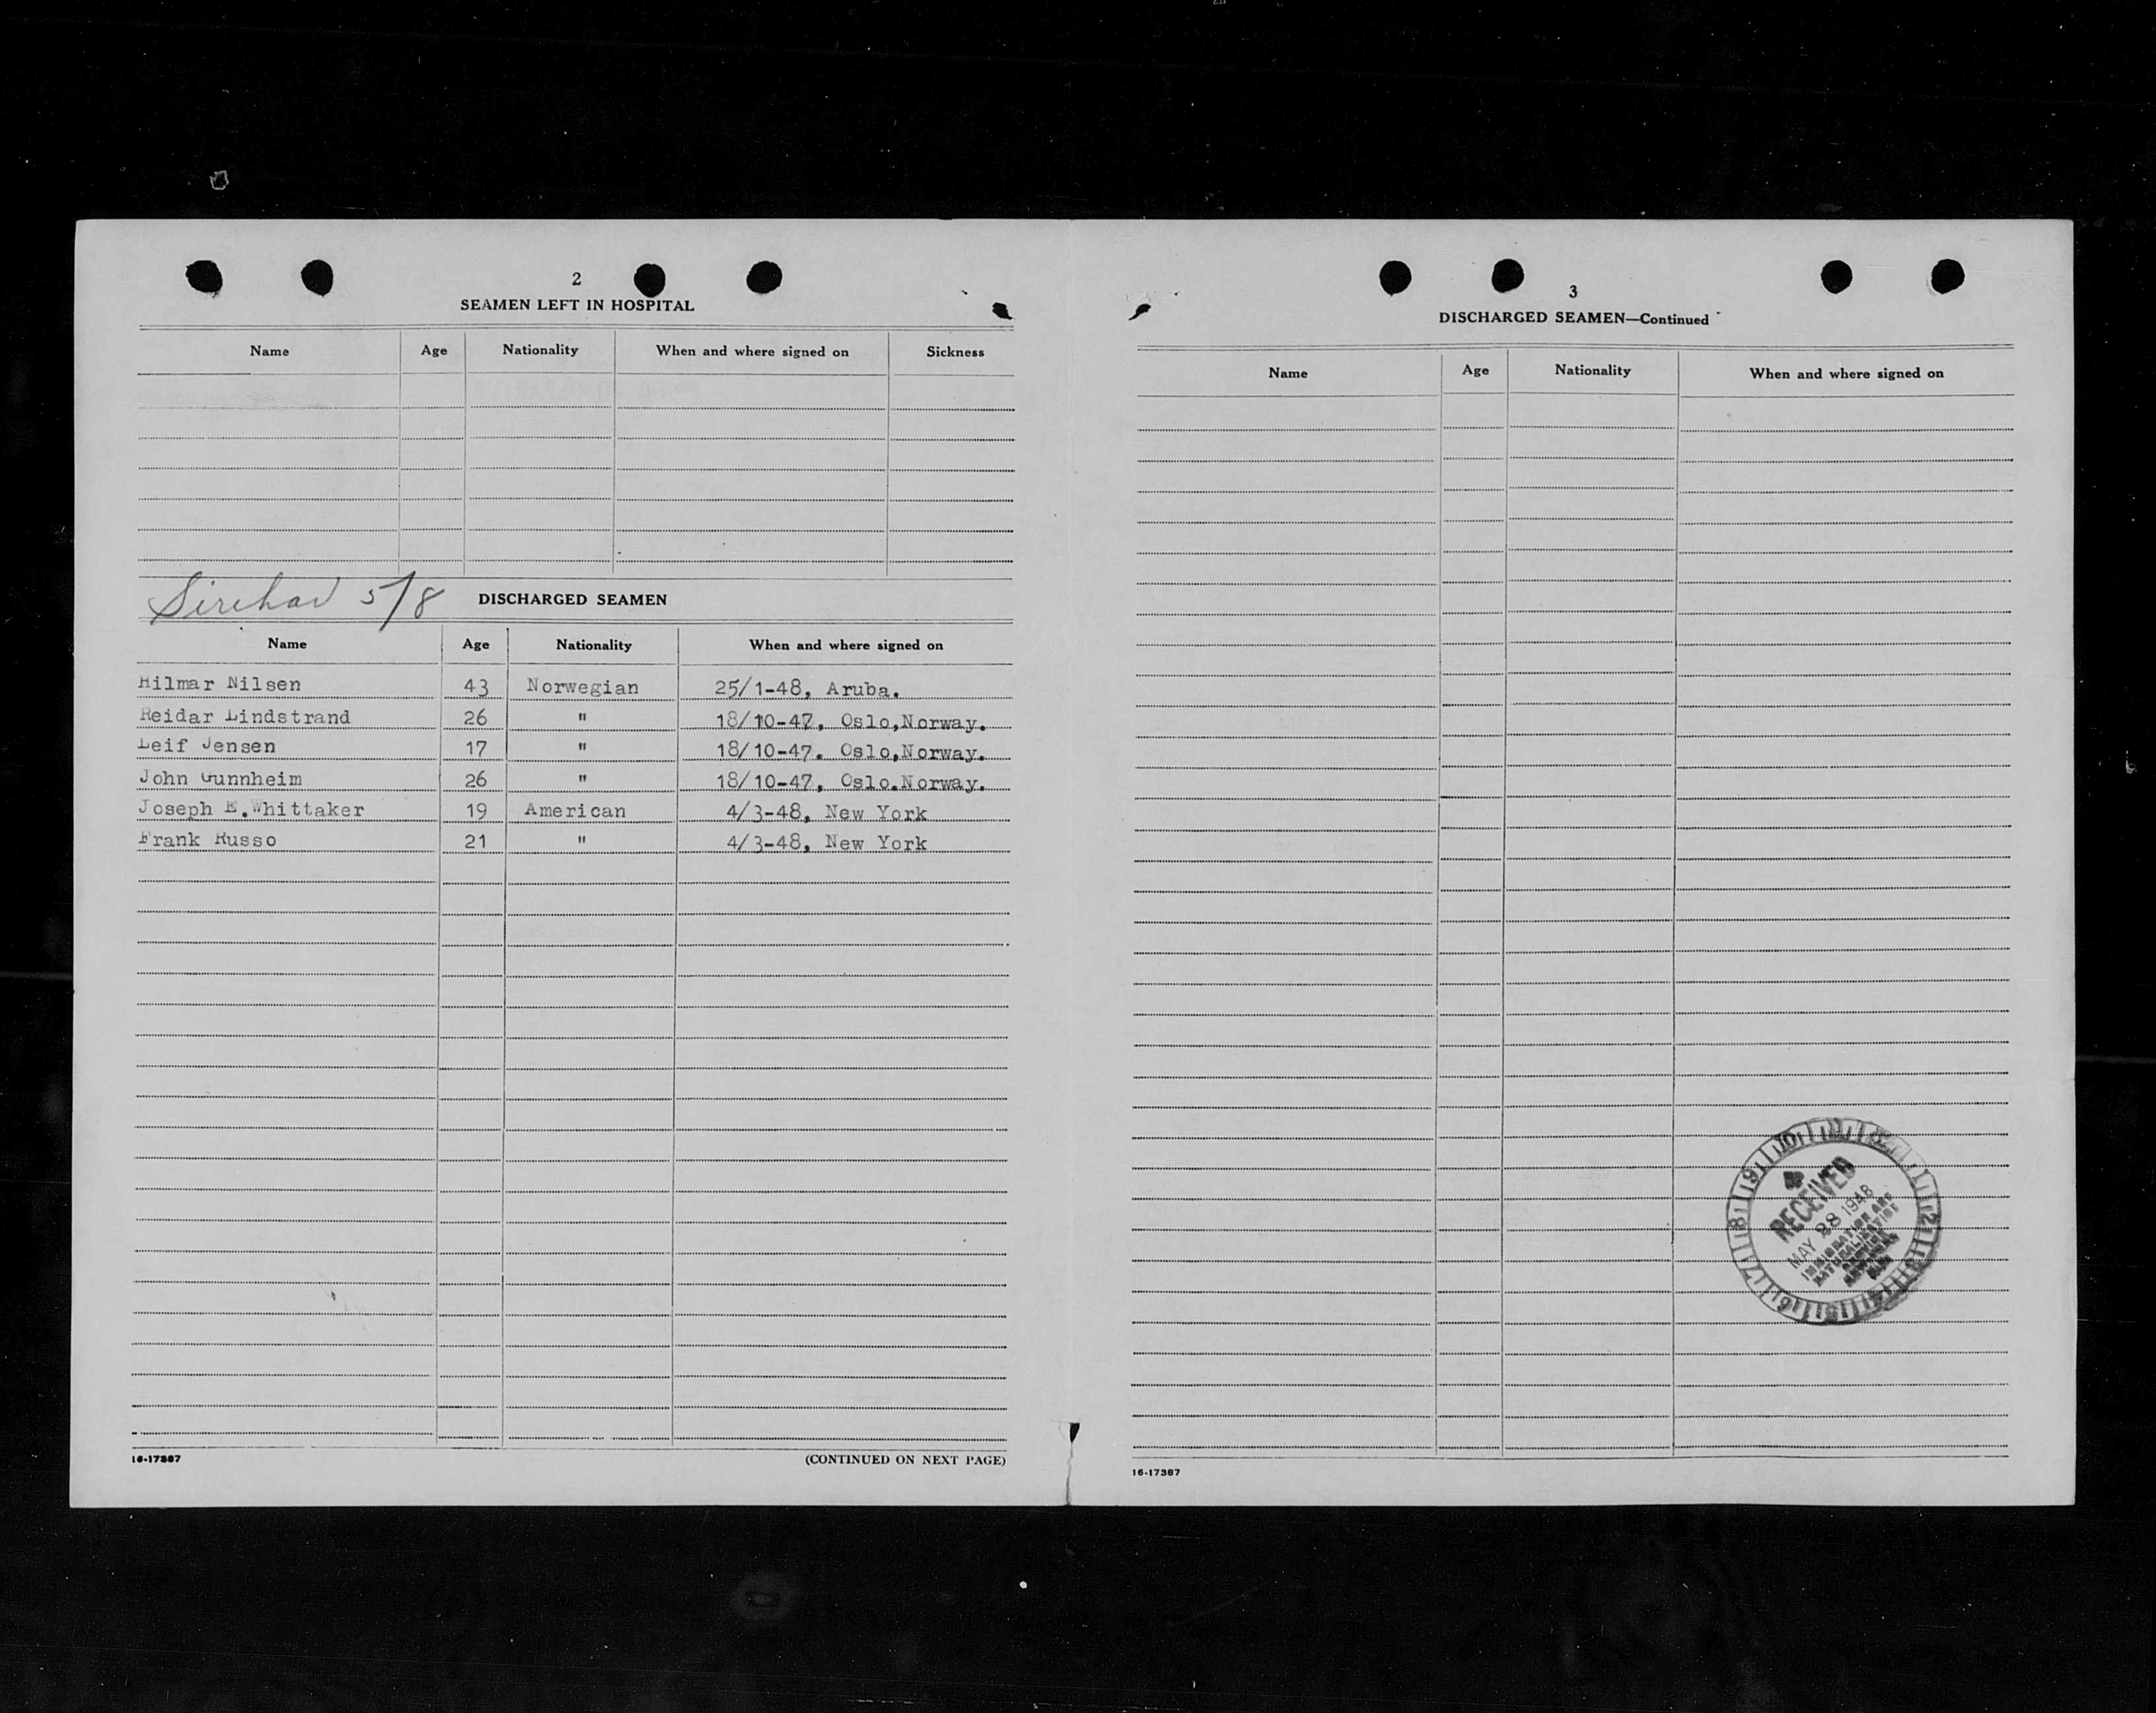 2
SEAMEN LEFT IN HOSPITAL
Name Age Nationality When and where signed on Sickness
5/8 DISCHARGED SEAMEN
Name Age Nationality When and where signed on
Hilmar Nilsen 43 Norwegian 25/1-48, Aruba.
Reidar Lindstrand 26 " 18/10-47, Oslo,Norway.
Leif Jensen 17 " 18/10-47. Oslo,Norway.
John Gunnheim 26 " 18/10-47, Oslo.Norway.
Joseph E.Whittaker 19 American 4/3-48, New York
Frank Russo 21 " 4/3-48, New York
16-17387 (CONTINUED ON NEXT PAGE)
3
DISCHARGED SEAMEN—Continued
Name Age Nationality When and where signed on
RECEIVED
MAY 28 1948
IMMIGRATION AND
NATURALIZATION
16-17387